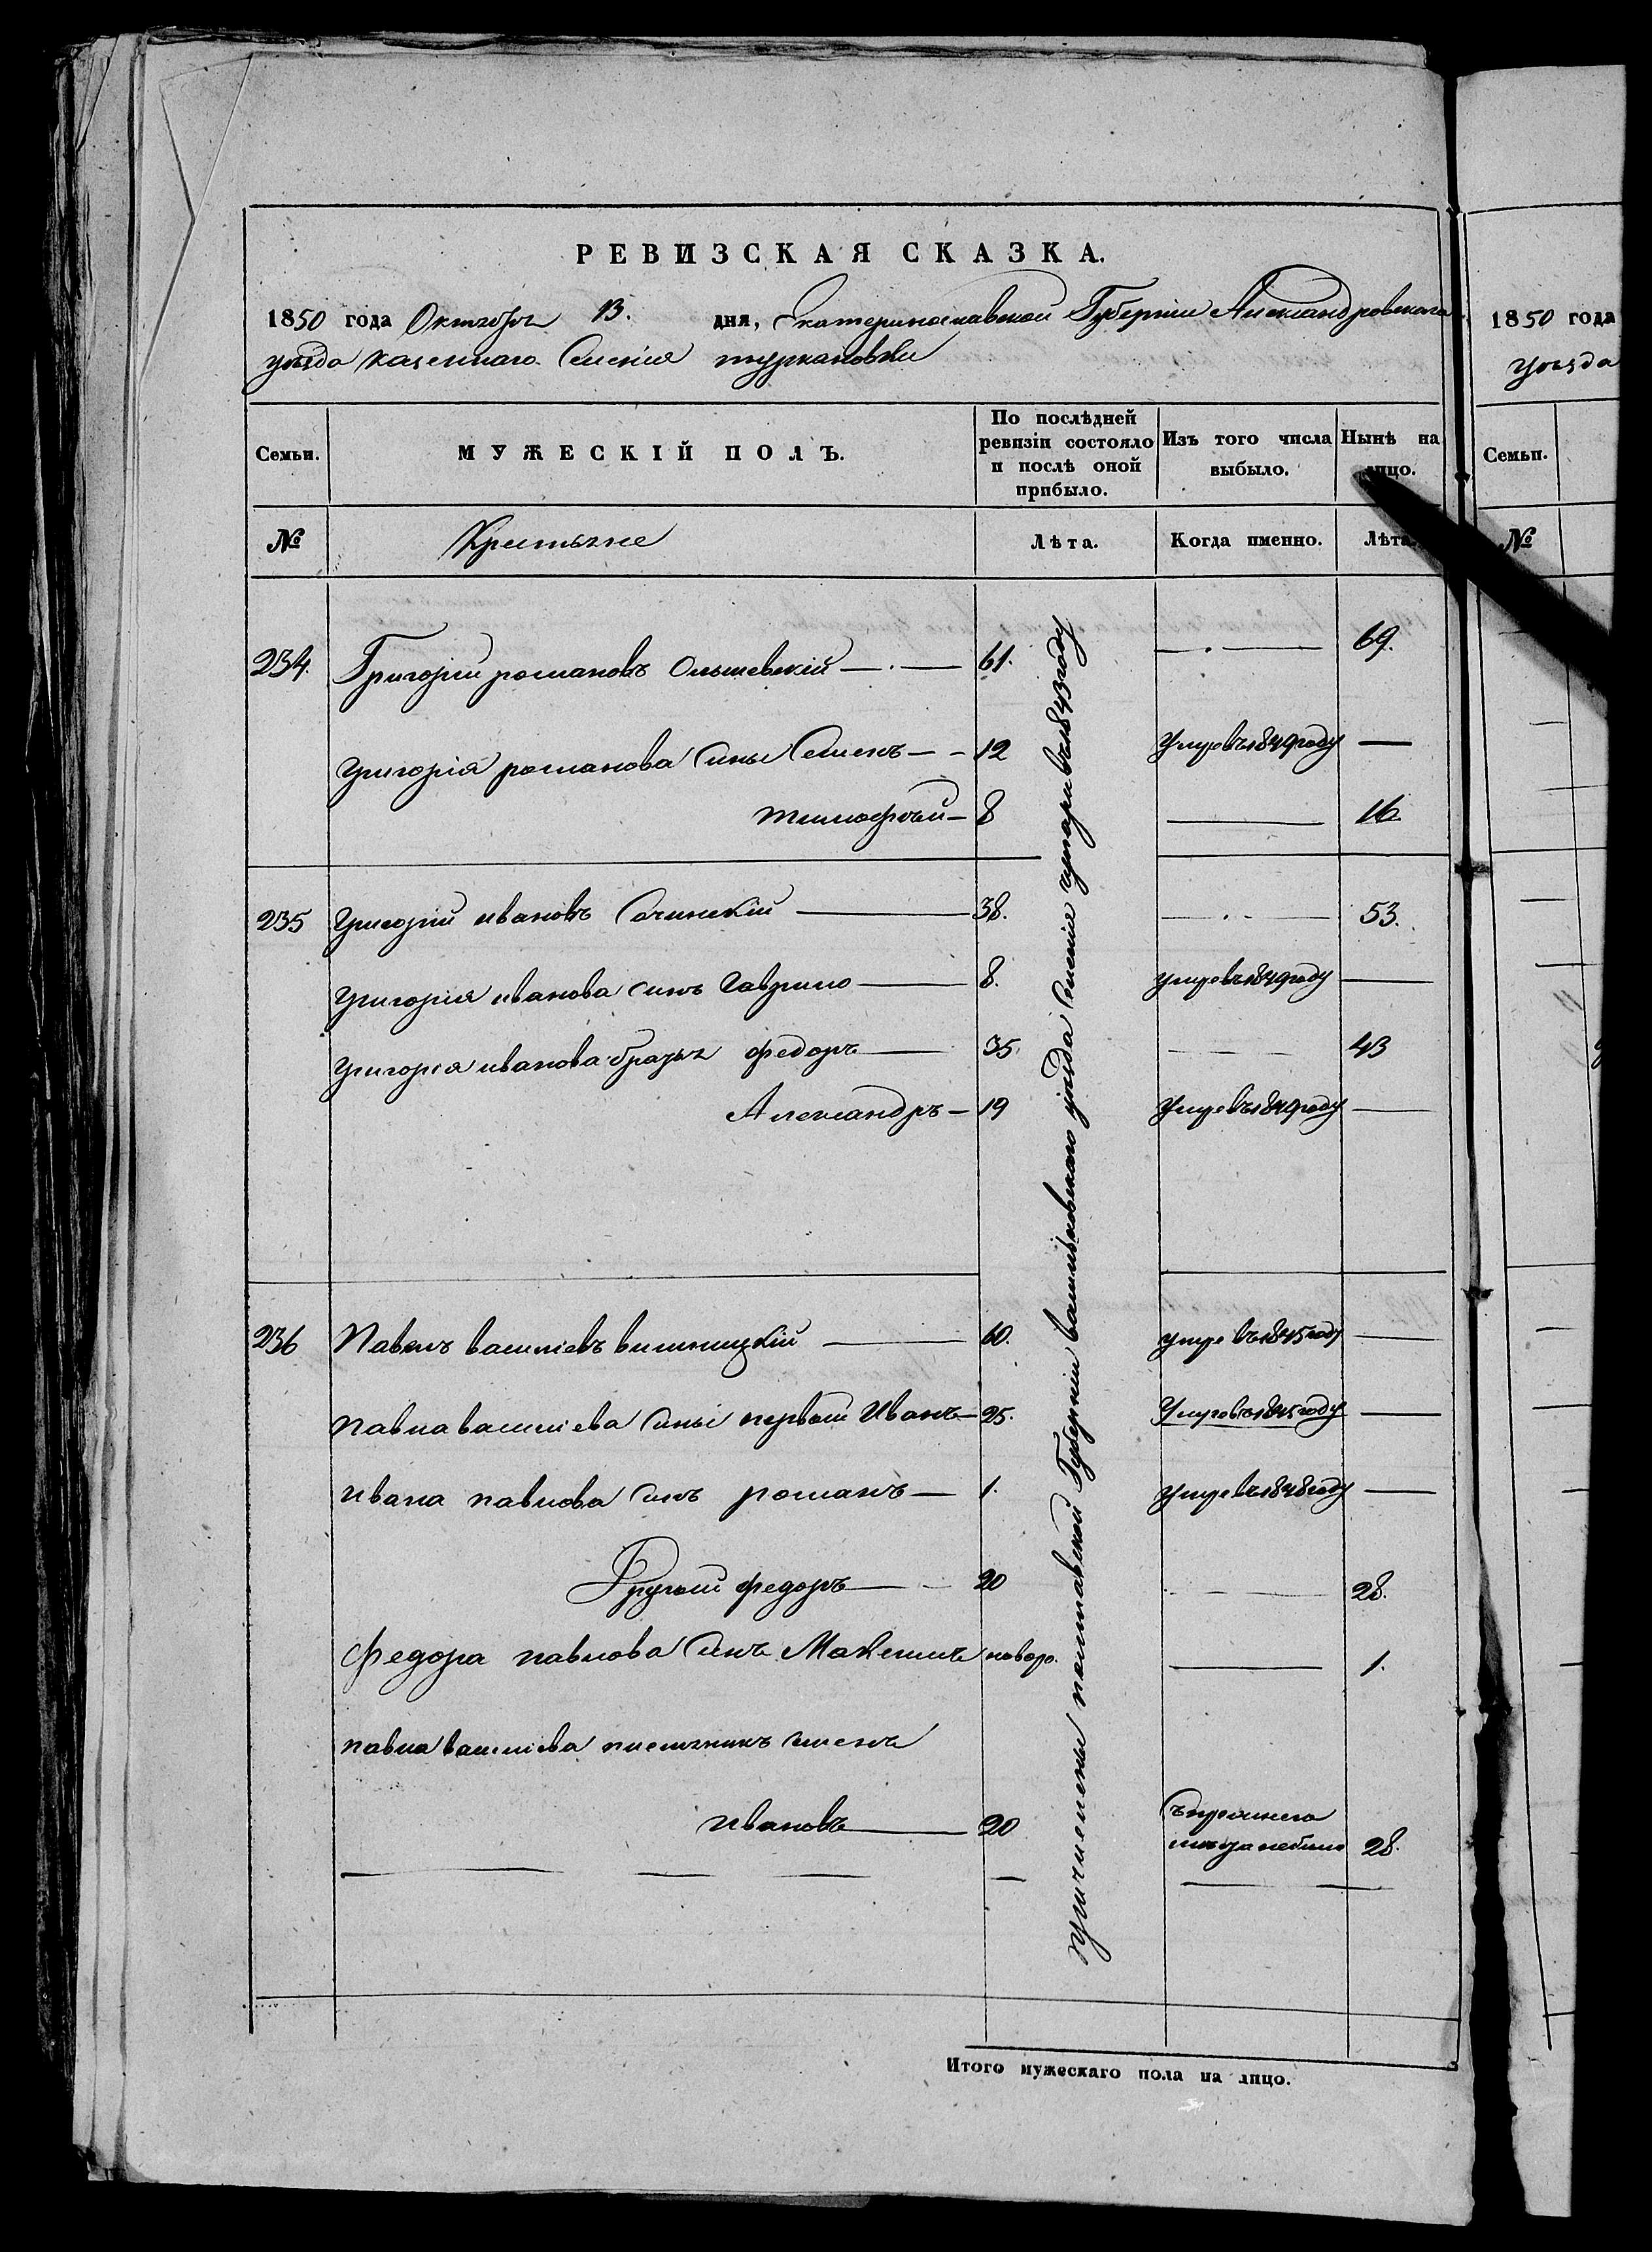 РЕВИЗСКАЯ СКАЗКА.
1850 года Октября 13. дня, Екатеринославской Губернии Александровскаго
уезда казеннаго Селенія туркановки
Семьи.
МУЖЕСКІЙ ПОЛЪ.
По послѣдней ревизіи состояло и послѣ оной прибыло.
Изъ того числа выбыло.
Нынѣ на лицо.
№ Крестьяне Лѣта. Когда именно. Лѣта.
234. Григорій романовъ Ольшевскій 61. 69.
Григорія романова Сины Семенъ 12 Умре въ 1849 году
тимофѣй 8 16
235 Григорій ивановъ Сочинскій 38. 53.
Григорія иванова синъ Гаврило 8. умре въ 1849 году
Григорія иванова братья федоръ 35. 43
Александръ 19 Умре въ 1849 году
236 Павелъ василіевъ вишницкій 60. умре въ 1845 году
павла василіева сины первый Иванъ 25. Умре въ 1845 году
ивана павлова синъ романъ 1. умре въ 1848 году
Другой федоръ 20 28.
Федора павлова Синъ Максимъ новоро. 1.
павла василіева племянникъ семенъ
ивановъ 20 28.
причислены полтавской Губерніи уезда Селенія въ 1843 году
Итого мужескаго пола на лицо.
1850 года
уезда
Семьи.
№